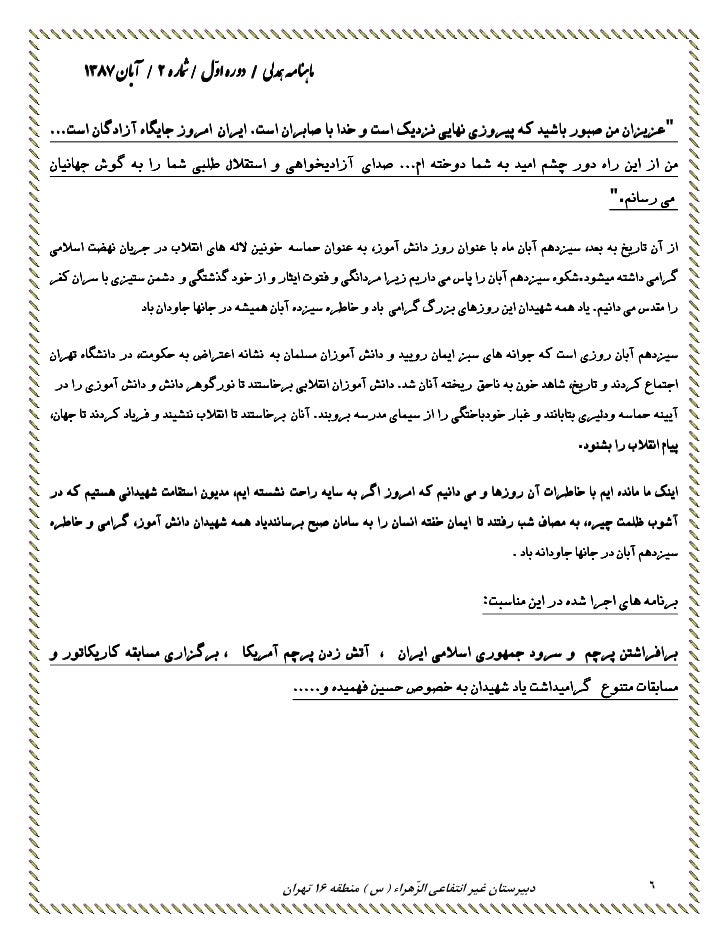 ماهنامه همدلی / دوره اوّل / شماره ۲ / آبان ۱۳۸۷
"عزیزان من صبور باشید که پیروزی نهایی نزدیک است و خدا با صابران است. ایران امروز جایگاه آزادگان است...
من از این راه دور چشم امید به شما دوخته ام... صدای آزادیخواهی و استقلال طلبی شما را به گوش جهانیان
می رسانم."
از آن تاریخ به بعد، سیزدهم آبان ماه با عنوان روز دانش آموز، به عنوان حماسه خونین لاله های انقلاب در جریان نهضت اسلامی
گرامی داشته میشود.شکوه سیزدهم آبان را پاس می داریم زیرا مردانگی و فتوت ایثار و از خود گذشتگی و دشمن ستیزی با سران کفر
را مقدس می دانیم. یاد همه شهیدان این روزهای بزرگ گرامی باد و خاطره سیزده آبان همیشه در جانها جاودان باد
سیزدهم آبان روزی است که جوانه های سبز ایمان رویید و دانش آموزان مسلمان به نشانه اعتراض به حکومت، در دانشگاه تهران
اجتماع کردند و تاریخ، شاهد خون به ناحق ریخته آنان شد. دانش آموزان انقلابی برخاستند تا نورگوهر دانش و دانش آموزی را در
آیینه حماسه ودلیری بتابانند و غبار خودباختگی را از سیمای مدرسه بروبند. آنان برخاستند تا انقلاب ننشیند و فریاد کردند تا جهان،
پیام انقلاب را بشنود.
اینک ما مانده ایم با خاطرات آن روزها و می دانیم که امروز اگر به سایه راحت نشسته ایم، مدیون استقامت شهیدانی هستیم که در
آشوب ظلمت چیره، به مصاف شب رفتند تا ایمان خفته انسان را به سامان صبح برسانندیاد همه شهیدان دانش آموز، گرامی و خاطره
سیزدهم آبان در جانها جاودانه باد .
برنامه های اجرا شده در این مناسبت:
برافراشتن پرچم و سرود جمهوری اسلامی ایران ، آتش زدن پرچم آمریکا ، برگزاری مسابقه کاریکاتور و
مسابقات متنوع گرامیداشت یاد شهیدان به خصوص حسین فهمیده و.....
دبیرستان غیر انتفاعی الزّهراء ( س ) منطقه ۱۶ تهران
۶